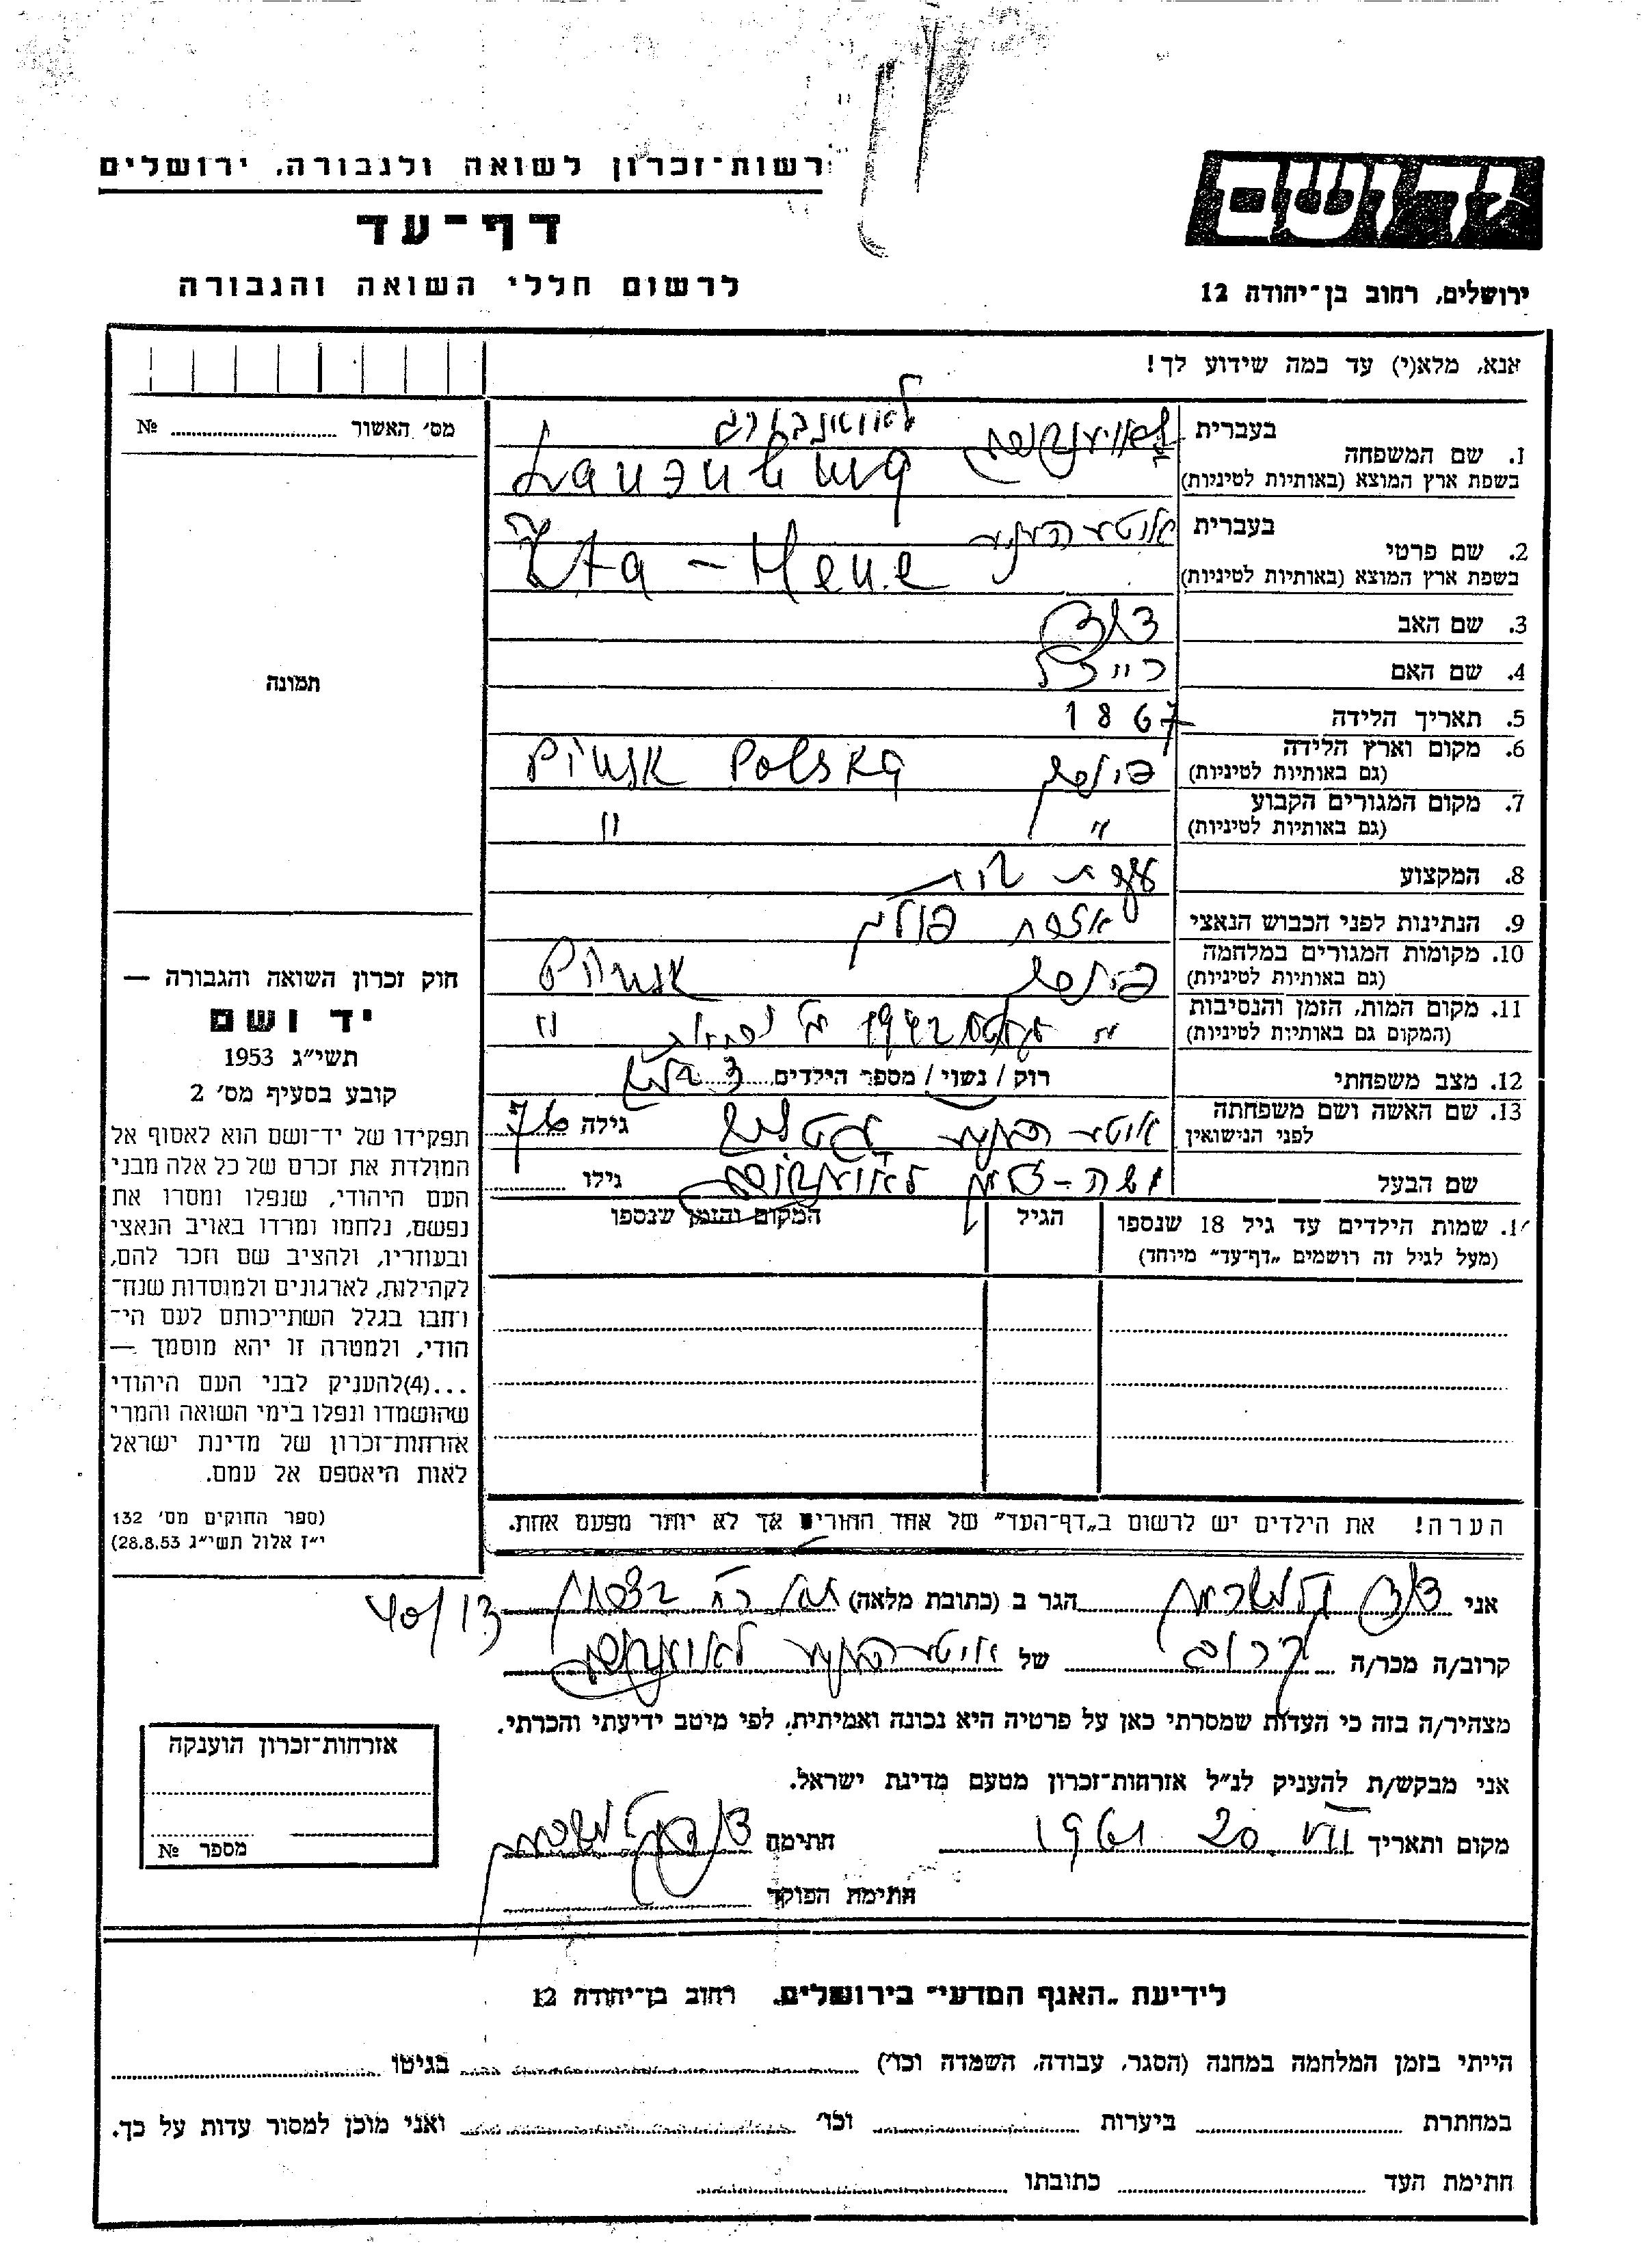 רשות־זכרון לשואה ולגבורה, ירושלים
דף־עד
לרשום חללי השואה והגבורה
יד ושם
ירושלים, רחוב בן־יהודה 12
אנא, מלא(י) עד כמה שידוע לך!
מס׳ האשור № 
תמונה
1. שם המשפחה בעברית לאוענבורג
בשפת ארץ המוצא (באותיות לטיניות)
2. שם פרטי בעברית
בשפת ארץ המוצא (באותיות לטיניות) Ita - Hene
3. שם האב דוד
4. שם האם רייזל
5. תאריך הלידה 1867
6. מקום וארץ הלידה פינסק Polska Pinsk
(גם באותיות לטיניות)
7. מקום המגורים הקבוע " "
(גם באותיות לטיניות)
8. המקצוע עקרת בית
9. הנתינות לפני הכבוש הנאצי אזרחת פולין
10. מקומות המגורים במלחמה פינסק Pinsk
(גם באותיות לטיניות)
11. מקום המות, הזמן והנסיבות " 1942 "
(המקום גם באותיות לטיניות)
12. מצב משפחתי רוק / נשוי / מספר הילדים 3
13. שם האשה ושם משפחתה גילה 76
לפני הנישואין
שם הבעל משה גילו
14. שמות הילדים עד גיל 18 שנספו הגיל המקום והזמן שנספו
(מעל לגיל זה רושמים „דף־עד״ מיוחד)
הערה! את הילדים יש לרשום ב„דף־העד״ של אחד ההורים אך לא יותר מפעם אחת.
חוק זכרון השואה והגבורה —
יד ושם
תשי״ג 1953
קובע בסעיף מס׳ 2
תפקידו של יד־ושם הוא לאסוף אל
המולדת את זכרם של כל אלה מבני
העם היהודי, שנפלו ומסרו את
נפשם, נלחמו ומרדו באויב הנאצי
ובעוזריו, ולהציב שם וזכר להם,
לקהילות, לארגונים ולמוסדות שנח־
רחבו בגלל השתייכותם לעם הי־
הודי, ולמטרה זו יהא מוסמך —
...(4)להעניק לבני העם היהודי
שהושמדו ונפלו בימי השואה והמרי
אזרחות־זכרון של מדינת ישראל
לאות היאספם אל עמם.
(ספר החוקים מס׳ 132
י״ז אלול תשי״ג 28.8.53)
אני דוד הגר ב (כתובת מלאה) 40/13
קרוב/ה מכר/ה קרוב של
מצהיר/ה בזה כי העדות שמסרתי כאן על פרטיה היא נכונה ואמיתית, לפי מיטב ידיעתי והכרתי.
אני מבקש/ת להעניק לנ״ל אזרחות־זכרון מטעם מדינת ישראל.
מקום ותאריך 20. VII 1961 חתימה
חתימת הפוקד
אזרחות־זכרון הוענקה
מספר №
לידיעת „האגף המדעי״ בירושלים, רחוב בן־יהודה 12
הייתי בזמן המלחמה במחנה (הסגר, עבודה, השמדה וכו׳) בגיטו
במחתרת ביערות וכו׳ ואני מוכן למסור עדות על כך.
חתימת העד כתובתו